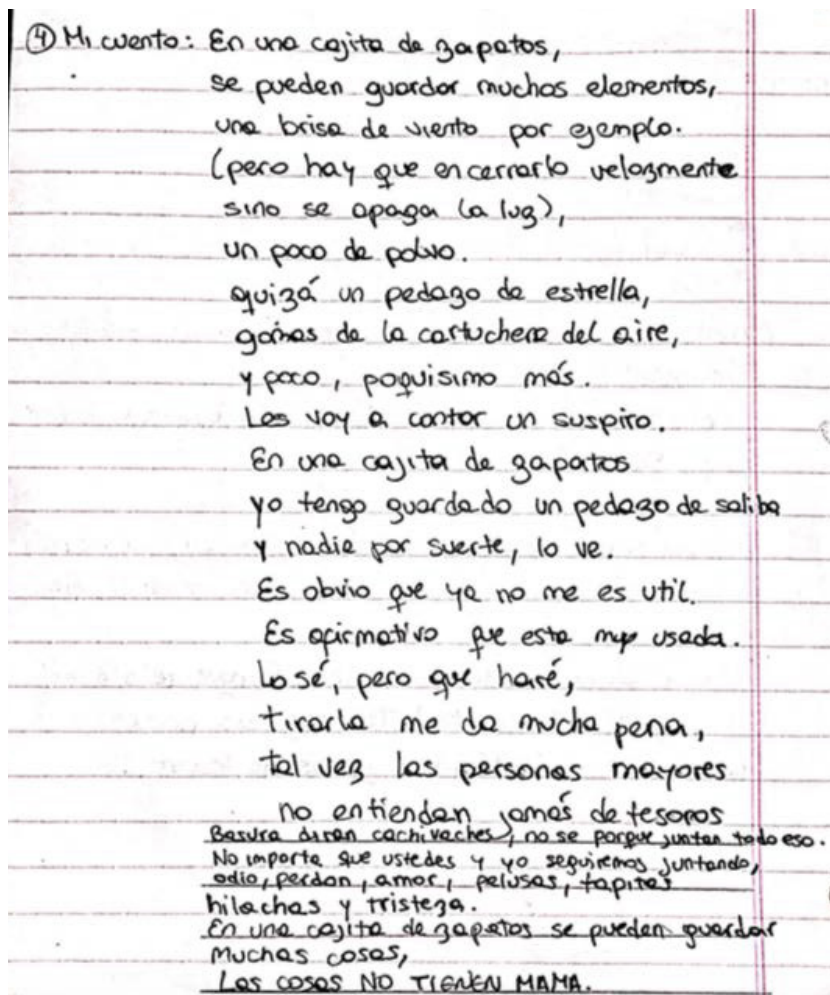 ④ Mi cuento: En una cajita de zapatos,
se pueden guardar muchos elementos,
una brisa de viento por ejemplo.
(pero hay que encerrarlo velozmente
sino se apaga la luz),
un poco de polvo.
quizá un pedazo de estrella,
gomas de la cartuchera del aire,
y poco, poquisimo más.
Les voy a contar un suspiro.
En una cajita de zapatos
yo tengo guardado un pedazo de saliba
y nadie por suerte, lo ve.
Es obvio que ya no me es util.
Es afirmativo que esta muy usada.
Lo sé, pero que haré,
tirarla me da mucha pena,
tal vez las personas mayores
no entiendan jamás de tesoros
Basura diran cachivaches, no se porque juntan todo eso.
No importa que ustedes y yo seguiremos juntando,
odio, perdon, amor, pelusas, tapitas
hilachas y tristeza.
En una cajita de zapatos se pueden guardar
muchas cosas,
Las cosas NO TIENEN MAMA.